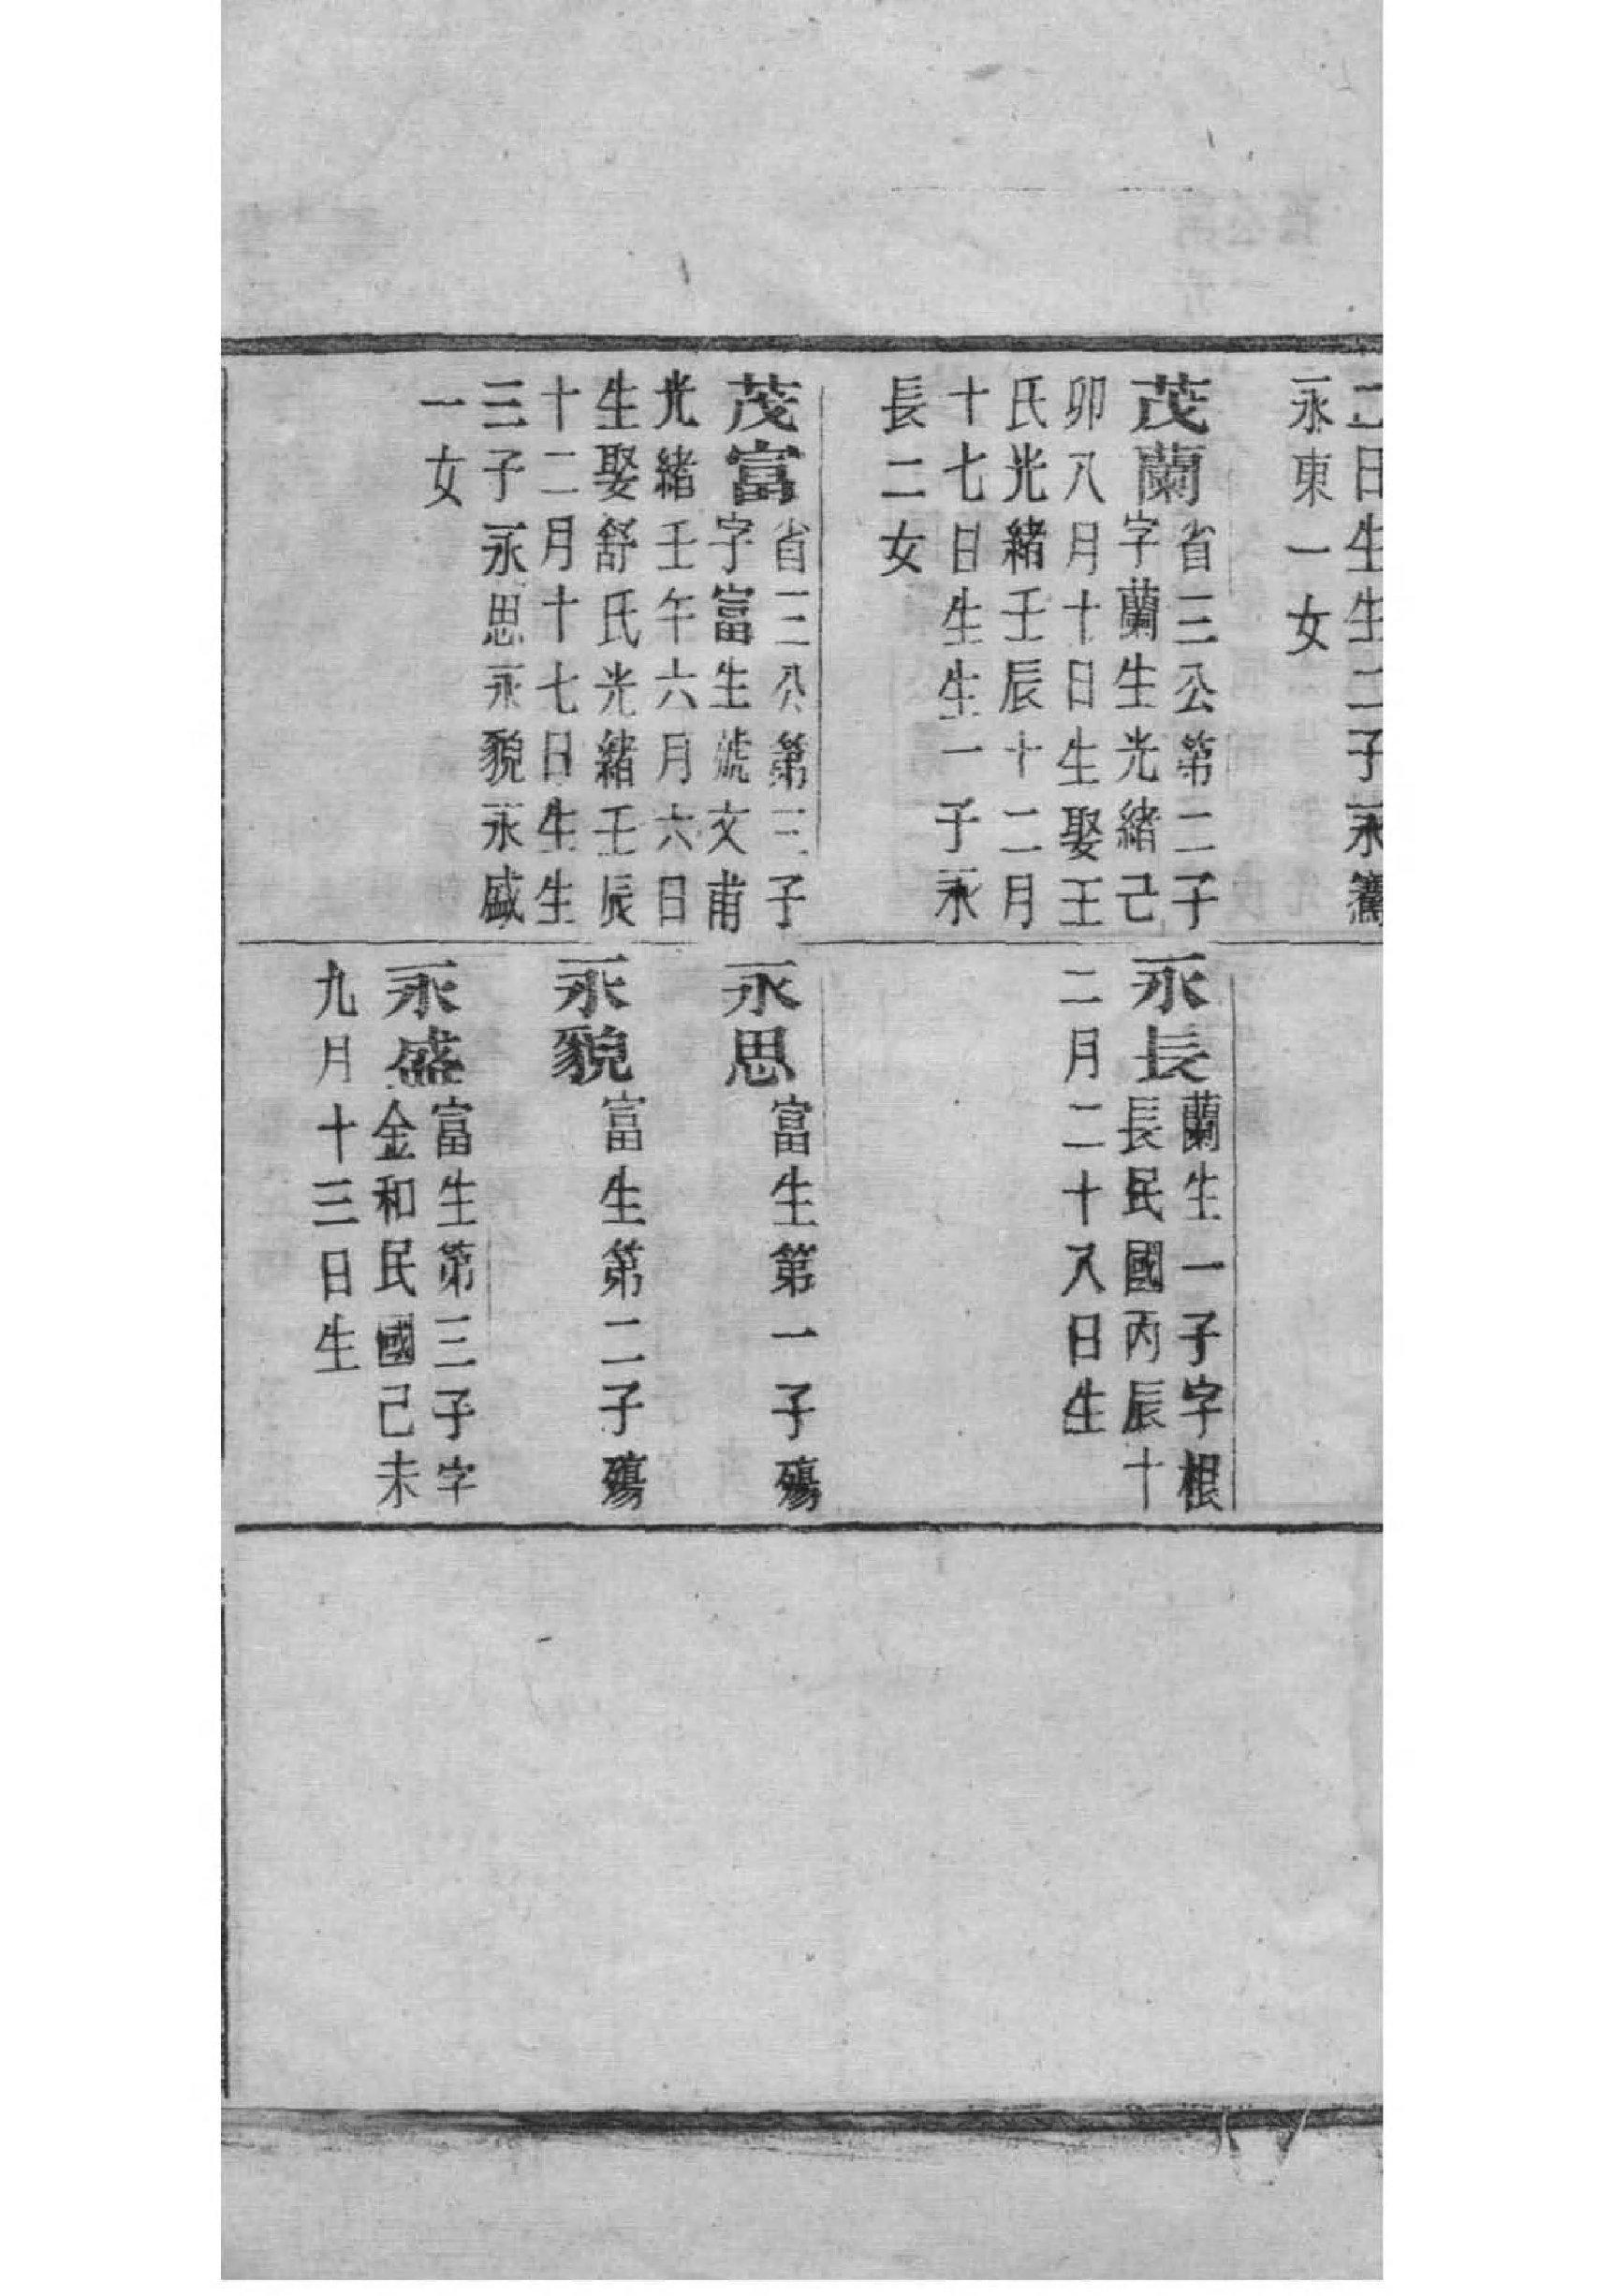 二日生生二子永
永東一女
茂蘭省三公第二子
字蘭生光緒己
卯八月十日生娶王
氏光緒壬辰十二月
十七日生生一子永
長二女
茂富省三公第三子
字富生號文甫
光緒壬午六月六日
生娶舒氏光緒壬辰
十二月十七日生生
三子永思永貌永盛
一女
永長蘭生一子字根
長民國丙辰十
二月二十八日生
永思富生第一子殤
永貌富生第二子殤
永盛富生第三子字
金和民國己未
九月十三日生